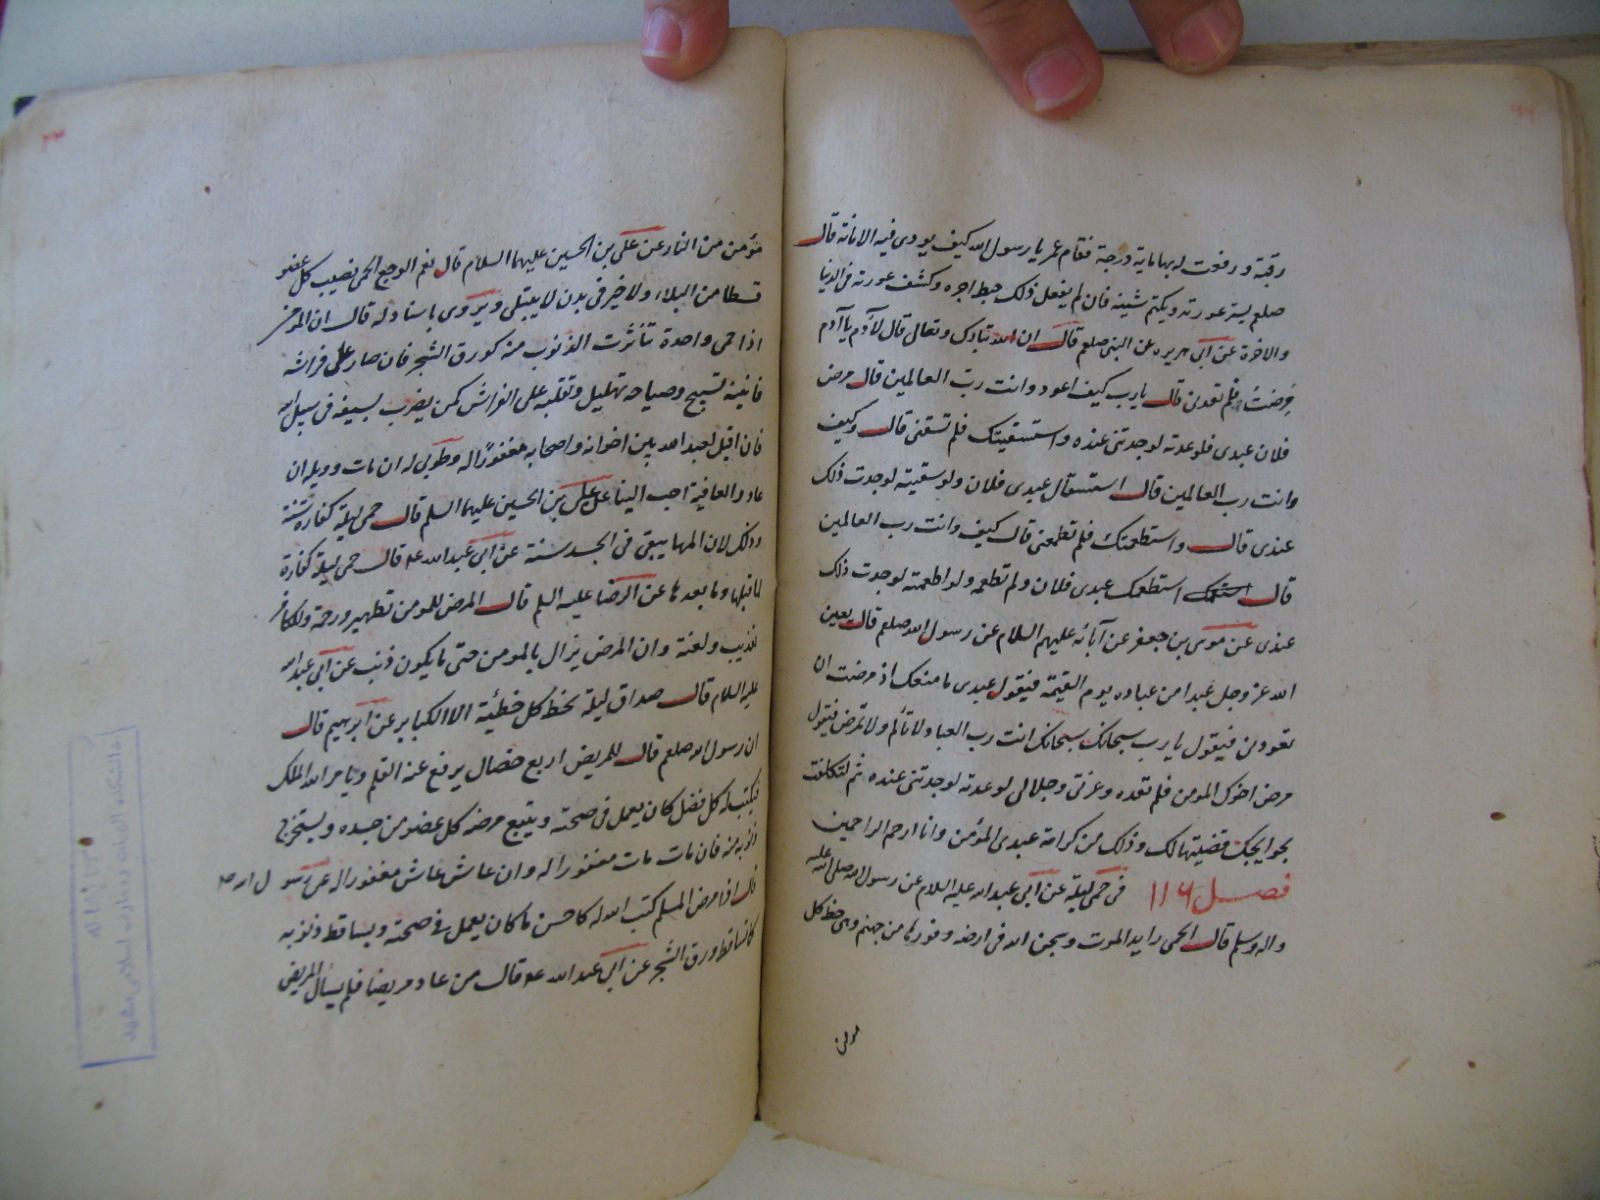 رقبة و رفعت له بها ماية درجة فقام عمر يا رسول الله كيف يودى فيه الامانة قال
صلعم يستر عورته ويكتم شينه فان لم يفعل ذلك حبط اجره وكشف عورته فى الدنيا
والاخرة عن ابى هريره عن النبى صلعم قال ان الله تبارك وتعالى قال لآدم يا آدم
مرضت فلم تعدنى قال يا رب كيف اعود وانت رب العالمين قال مرض
فلان عبدى فلو عدته لوجدتنى عنده واستسقيتك فلم تسقنى قال وكيف
وانت رب العالمين قال استسقاك عبدى فلان ولو سقيته لوجدت ذلك
عندى قال واستطعمتك فلم تطعمنى قال كيف وانت رب العالمين
قال استطعمك عبدى فلان ولم تطعمه ولو اطعمته لوجدت ذلك
عندى عن موسى بن جعفر عن آبائه عليهم السلام عن رسول الله صلعم قال يعير
الله عز وجل عبدا من عباده يوم القيمة فيقول عبدى ما منعك اذ مرضت ان
تعودنى فيقول يا رب سبحانك سبحانك انت رب العباد لا تألم ولا تمرض فيقول
مرض اخوك المومن فلم تعده وعزتى وجلالى لو عدته لوجدتنى عنده ثم لتكلفت
بحوايجك فقضيتها لك وذلك من كرامة عبدى المؤمن وانا ارحم الراحمين
فصل ١١٦ فى حمى ليلة عن ابى عبد الله عليه السلام عن رسول الله صلى الله عليه
واله وسلم قال الحمى رايد الموت وسجن الله فى ارضه وفورها من جهنم وهى حظ كل
مومن
٢٣
مؤمن من النار عن على بن الحسين عليهما السلام قال نعم الوجع الحمى نصيب كل عضو
قسطا من البلاء ولا خير فى بدن لا يبتلى ويروى باسناد له قال ان المومن
اذا حمى واحدة تناثرت الذنوب منه كورق الشجر فان صار على فراشه
فانينه تسبيح وصياحه تهليل وتقلبه على الفراش كمن يضرب بسيفه فى سبيل الله
فان اقبل لعبد الله بين اخوانه واصحابه مغفورًا له وطوبى له ان مات وويله ان
عاد والعافية احب الينا عن على بن الحسين عليهما السلم قال حمى ليلة كفارة سنة
وذلك لان المها يبقى فى الجسد سنة عن ابى عبد الله ع قال حمى ليلة كفارة
لما قبلها وما بعدها عن الرضا عليه السلم قال المرض للمومن تطهير ورحمة وللكافر
تعذيب ولعنة وان المرض يزال بالمومن حتى ما يكون ذنب عن ابى عبد الله
عليه السلام قال صداع ليلة تحط كل خطيئة الا الكباير عن ابرهيم قال
ان رسول الله صلعم قال للمريض اربع خصال يرفع عنه القلم ويامر الله الملك
فيكتب له كل فضل كان يعمل فى صحته ويتبع مرضه كل عضو من جسده ويستخرج
ذنوبه منه فان مات مات مغفورا له وان عاش عاش مغفورا له عن رسول الله ص
قال اذا مرض المسلم كتب الله له كاحسن ما كان يعمل فى صحته ويساقط ذنوبه
كما تساقط ورق الشجر عن ابى عبد الله ع قال من عاد مريضا فلم يسأل المريض
دانشكده الهيات ومعارف اسلامى مشهد